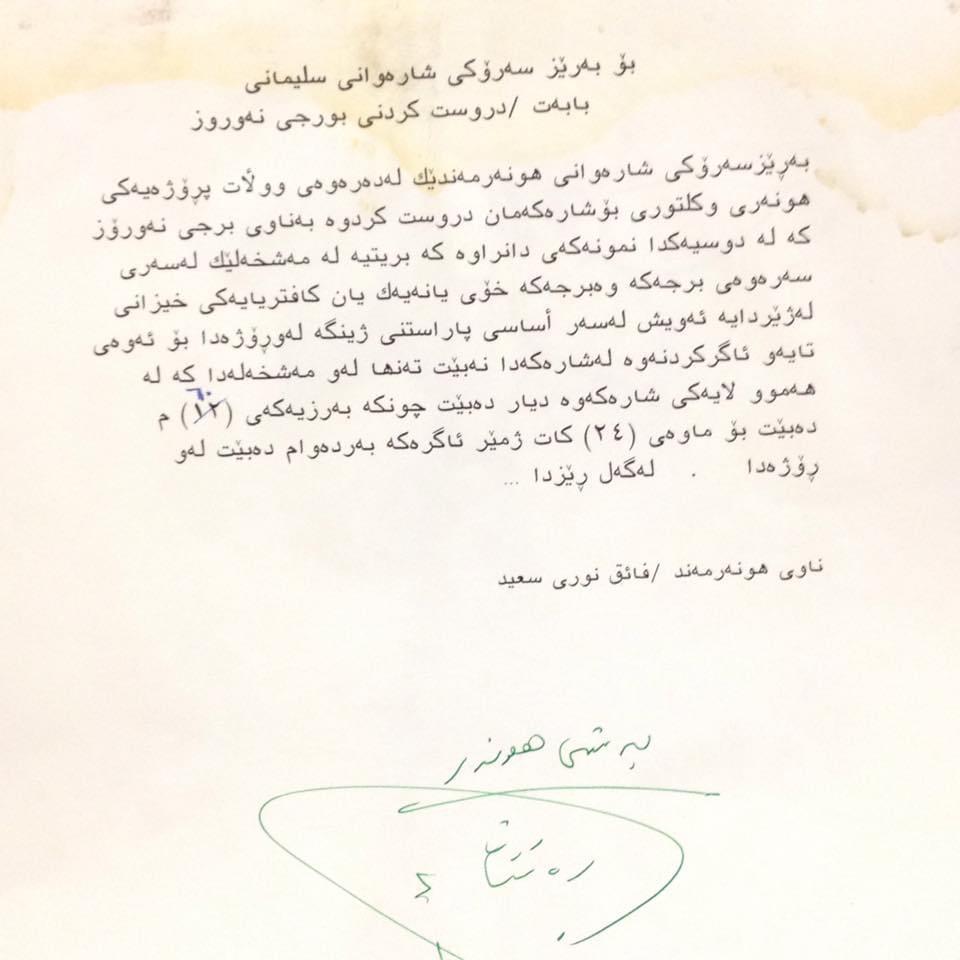 بۆ بەرێز سەرۆکی شارەوانی سلیمانی
بابەت /دروست کردنی بورجی نەوروز
بەڕێزسەرۆکی شارەوانی هونەرمەندێك لەدەرەوەی ووڵات پرۆژەیەکی
هونەری وکلتوری بۆشارەکەمان دروست کردوە بەناوی برجی نەورۆز
کە لە دوسیەکدا نمونەکەی دانراوە کە بریتیە لە مەشخەلێك لەسەری
سەرەوەی برجەکە وەبرجەکە خۆی یانەیەك یان کافتریایەکی خیزانی
لەژێردایە ئەویش لەسەر أساسی پاراستنی ژینگە لەورۆژەدا بۆ ئەوەی
تایەو ئاگرکردنەوە لەشارەکەدا نەبێت تەنها لەو مەشخەلەدا کە لە
هەموو لایەکی شارەکەوە دیار دەبێت چونکە بەرزیەکەی (١٢) م
٦٠
دەبێت بۆ ماوەی (٢٤) کات ژمێر ئاگرەکە بەردەوام دەبێت لەو
ڕۆژەدا . لەگەل ڕێزدا ...
ناوی هونەرمەند /فائق نوری سعید
بەشی هونەر